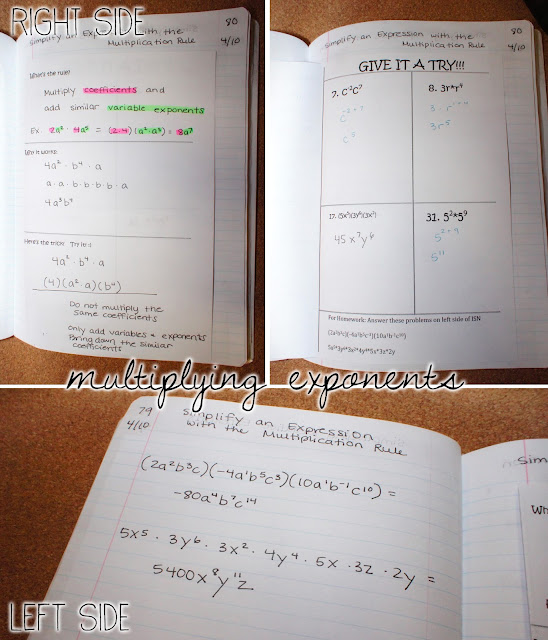 RIGHT SIDE
80
Simplify an Expression with the
Multiplication Rule
4/10
What's the rule?
Multiply coefficients and
add similar variable exponents
Ex. 2a² · 4a⁵ = (2·4)(a²·a⁵) = 8a⁷
Why it works:
4a² · b⁴ · a
a · a · b · b · b · b · a
4a³b⁴
Here's the trick! Try it!
4a² · b⁴ · a
(4)(a²·a)(b⁴)
Do not multiply the
same coefficients
Only add variables + exponents
Bring down the similar
coefficients
Simplify an Expression with the
Multiplication Rule
80
4/10
GIVE IT A TRY!!!
7. C⁻²C⁷
C⁻²⁺⁷
C⁵
8. 3r*r⁴
3 · r¹⁺⁴
3r⁵
17.
45x⁷y⁶
31. 5²*5⁹
5²⁺⁹
5¹¹
For Homework: Answer these problems on left side of ISN
(2a²b³c)(-4a¹b⁵c³)(10a¹b⁻¹c¹⁰)
5x⁵*3y⁶*3x²*4y⁴*5x*3z*2y
multiplying exponents
79
4/10
Simplify an Expression
with the Multiplication Rule
(2a²b³c)(-4a¹b⁵c³)(10a¹b⁻¹c¹⁰) =
-80a⁴b⁷c¹⁴
5x⁵ · 3y⁶ · 3x² · 4y⁴ · 5x · 3z · 2y =
5400x⁸y¹¹z
LEFT SIDE